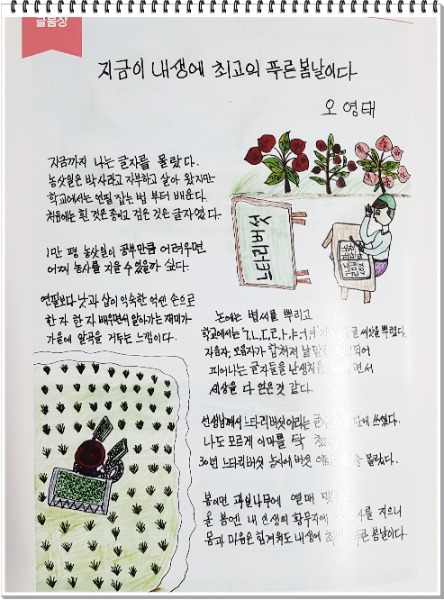 글봄상
지금이 내생에 최고의 푸른봄날이다
오영태
지금까지 나는 글자를 몰랐다.
농삿일은 박사라고 자부하고 살아 왔지만
학교에서는 연필 잡는 법 부터 배운다.
처음에는 흰 것은 종이고 검은 것은 글자였다.
1만 평 농삿일이 공부만큼 어려우면
어찌 농사를 지을 수 있을까 싶다.
연필보다 낫과 삽이 익숙한 억센 손으로
한 자 한 자 배우면서 알아가는 재미가
가을에 알곡을 거두는 느낌이다.
느타리버섯
논에는 볍씨를 뿌리고
학교에서는 글 씨앗을 뿌렸다.
자음자, 모음자가 합쳐져 낱말 되어
피어나는 글자들을 난생처음 면서
세상을 다 얻은것 같다.
선생님께서 느타리버섯이라는 글자 쓰셨다.
나도 모르게 이마를 탁
30년 느타리버섯 농사에 버섯 몰랐다.
봄이면 과일나무에 열매 맺
올 봄엔 내 인생의 황무지에 사를 지으니
몸과 마음은 힘겨워도 내생에 최 른 봄날이다.